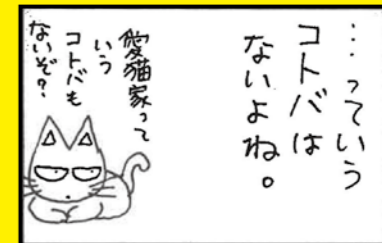 …っていう
コトバは
ないよね。
愛猫家って
いう
コトバも
ないぞ?